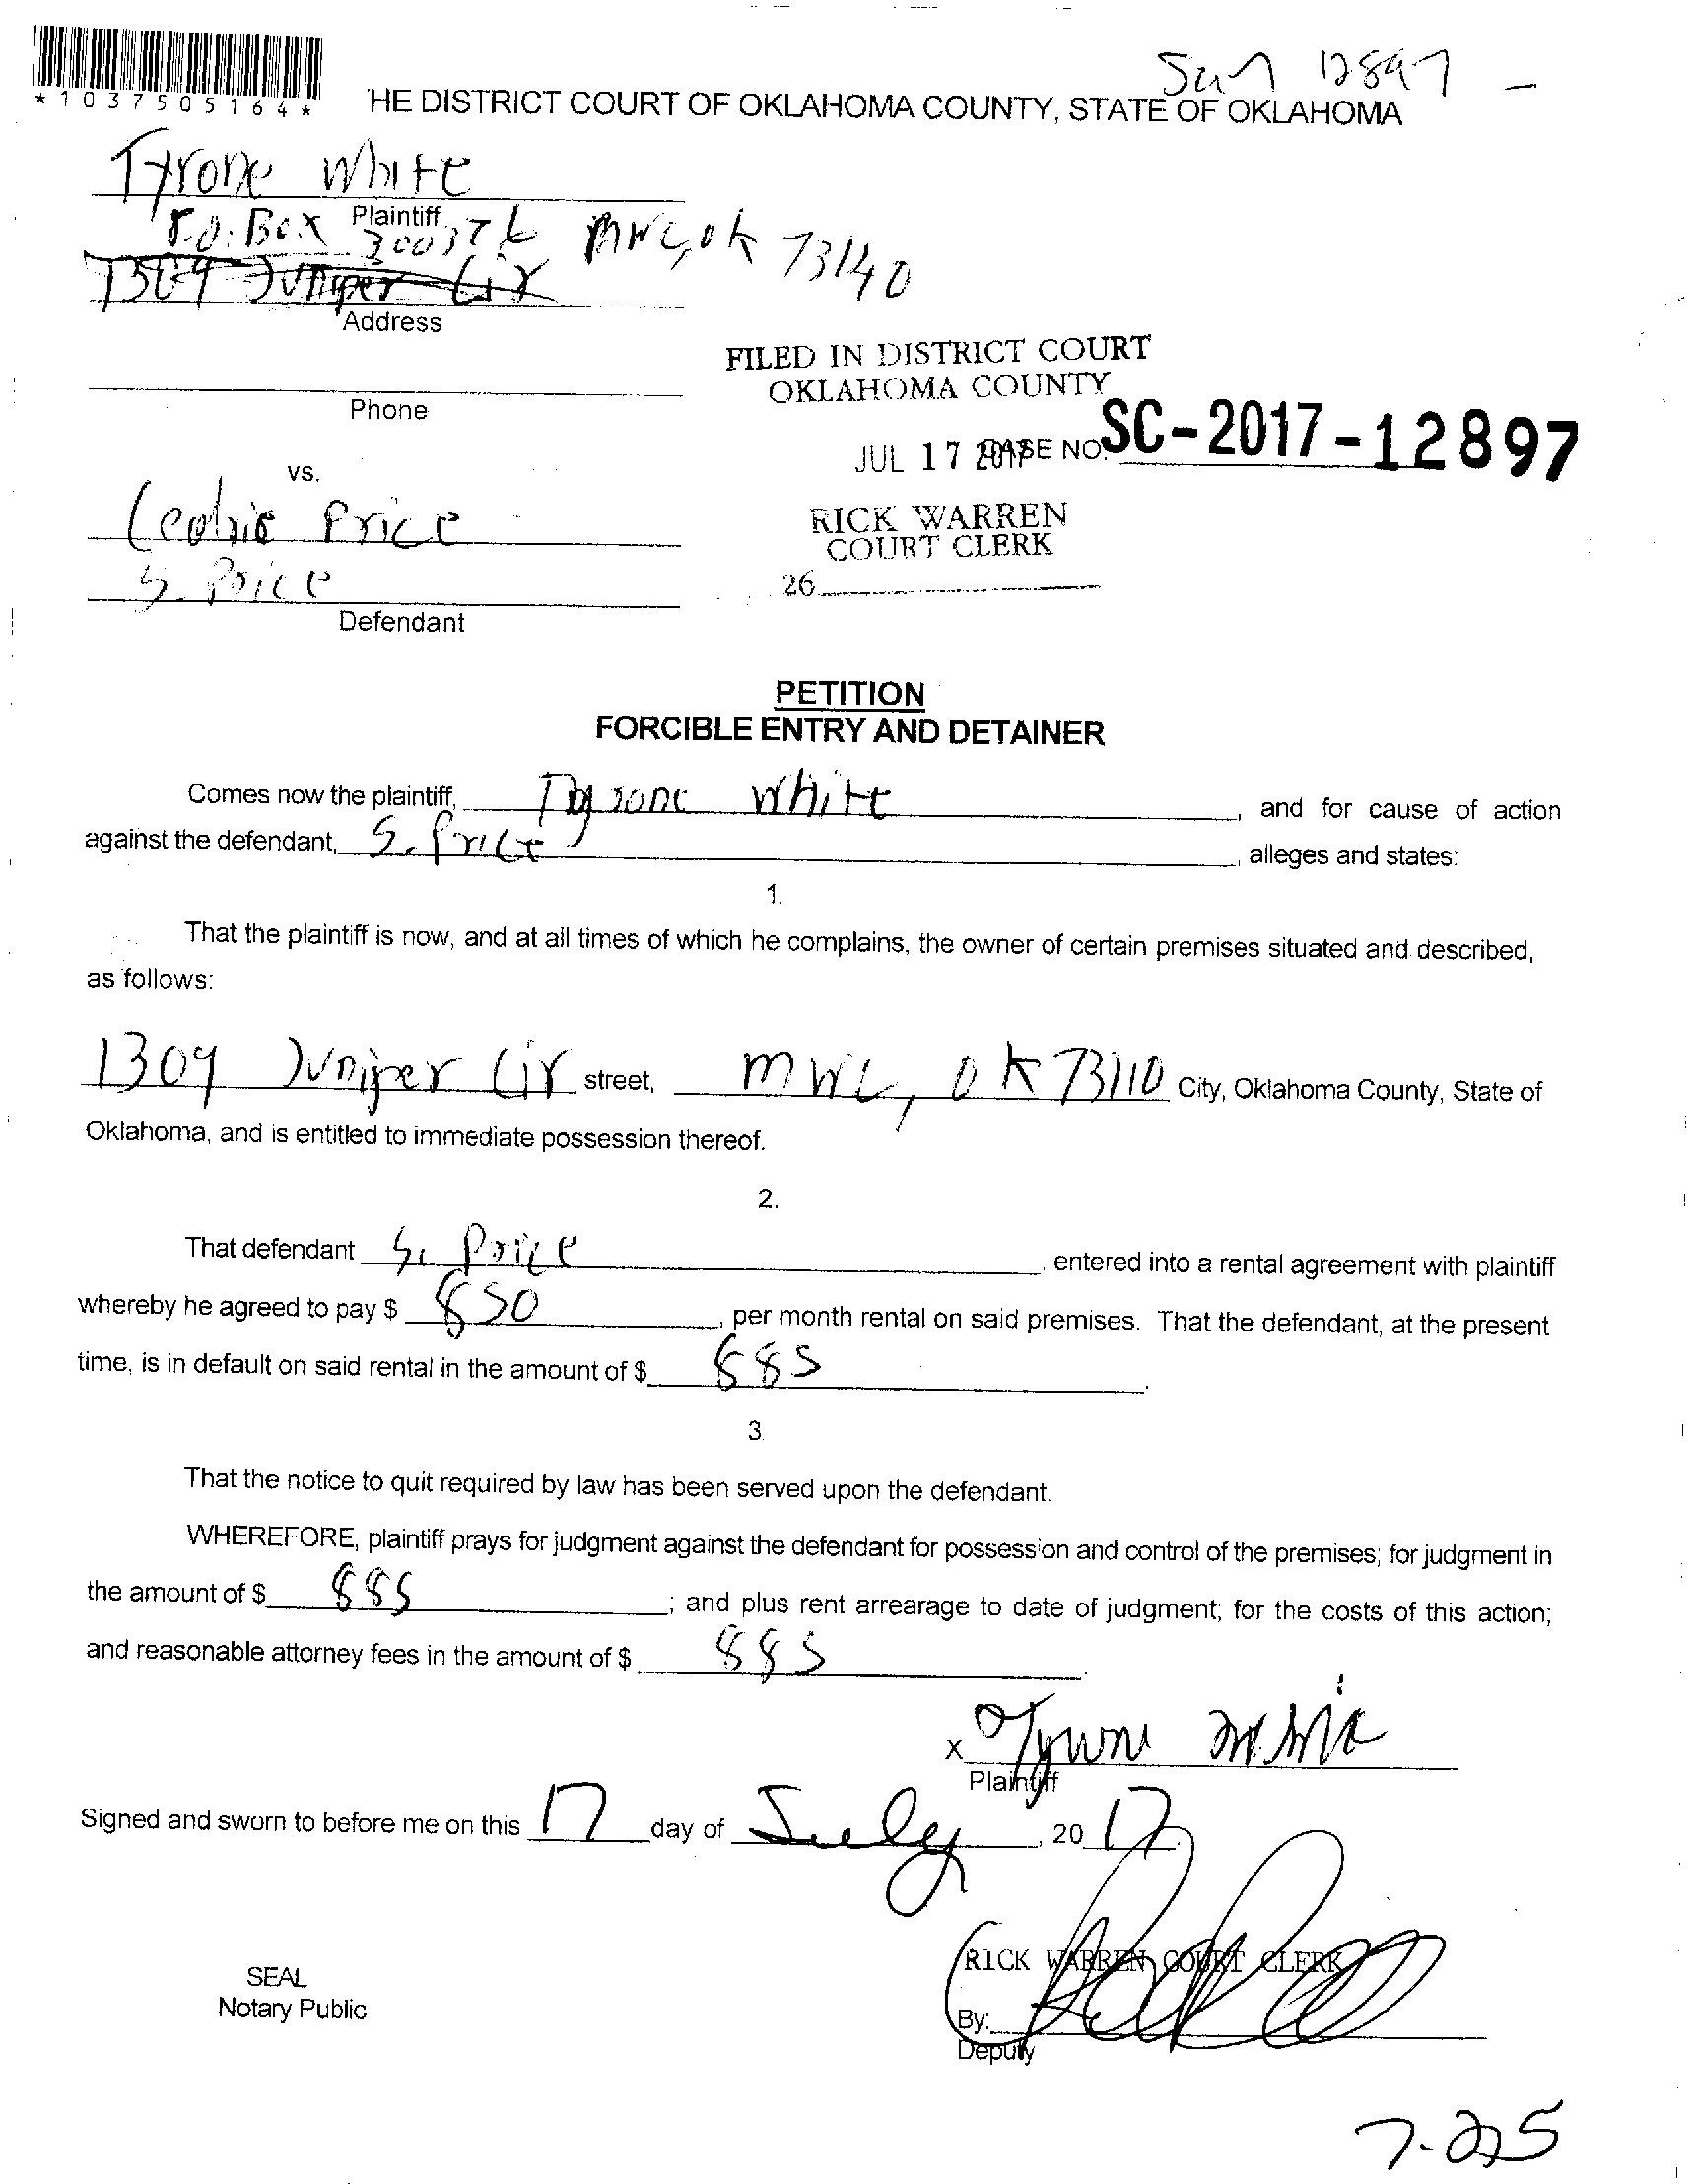 *1037505164*
12897
HE DISTRICT COURT OF OKLAHOMA COUNTY, STATE OF OKLAHOMA
Tyrone White
Plaintiff
P.O. Box 300376 MWC, OK 73140
1309 Juniper Cir
Address
Phone
FILED IN DISTRICT COURT
OKLAHOMA COUNTY
JUL 17 2017 CASE NO. SC-2017-12897
vs.
Cedric Price
RICK WARREN
COURT CLERK
S. Price
26
Defendant
PETITION
FORCIBLE ENTRY AND DETAINER
Comes now the plaintiff, Tyrone White, and for cause of action
against the defendant, S. Price, alleges and states:
1.
That the plaintiff is now, and at all times of which he complains, the owner of certain premises situated and described,
as follows:
1309 Juniper Cir street, MWC, OK 73110 City, Oklahoma County, State of
Oklahoma, and is entitled to immediate possession thereof.
2.
That defendant S. Price, entered into a rental agreement with plaintiff
whereby he agreed to pay $ 850, per month rental on said premises. That the defendant, at the present
time, is in default on said rental in the amount of $ 885.
3.
That the notice to quit required by law has been served upon the defendant.
WHEREFORE, plaintiff prays for judgment against the defendant for possession and control of the premises; for judgment in
the amount of $ 885; and plus rent arrearage to date of judgment; for the costs of this action;
and reasonable attorney fees in the amount of $ 885.
x Tyrone
Plaintiff
Signed and sworn to before me on this 17 day of July, 2017.
RICK WARREN COURT CLERK
SEAL
Notary Public
By:
Deputy
7-25